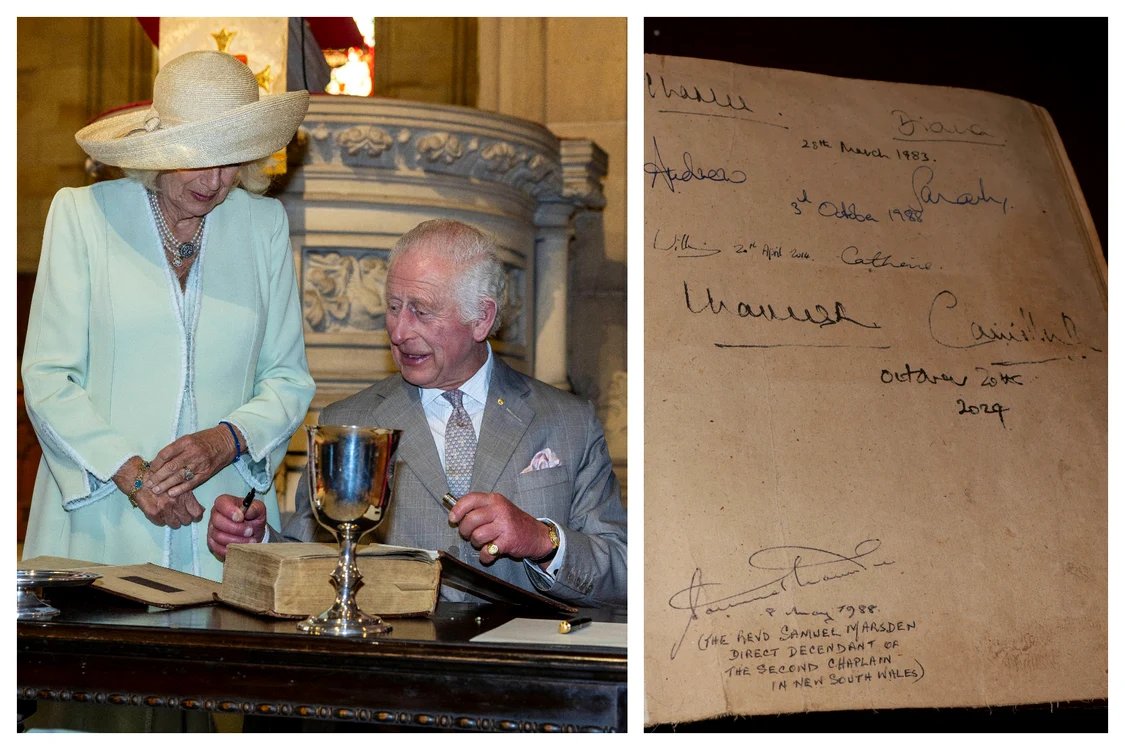 Charles. Diana
28th March 1983.
Andrew Sarah.
3rd October 1988
William 20th April 2014. Catherine.
Charles R Camilla R
October 20th
2024
8 May 1988.
(THE REVD SAMUEL MARSDEN
DIRECT DECENDANT OF
THE SECOND CHAPLAIN
IN NEW SOUTH WALES)